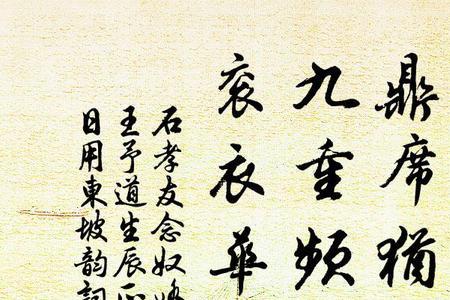 鼎席猶
九重頻
衮衣華
石孝友念奴
王予道生辰正
日用東坡韻詞